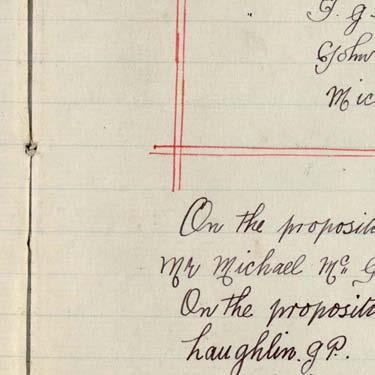 T. G.
John
Mic
On the proposit
Mr Michael Mc G
On the proposit
Laughlin. G.P.